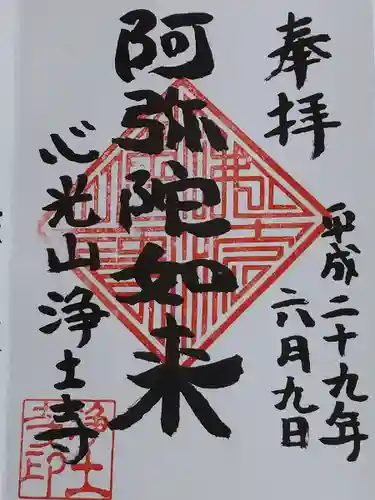 奉拝
平成二十九年
六月九日
阿弥陀如来
心光山浄土寺